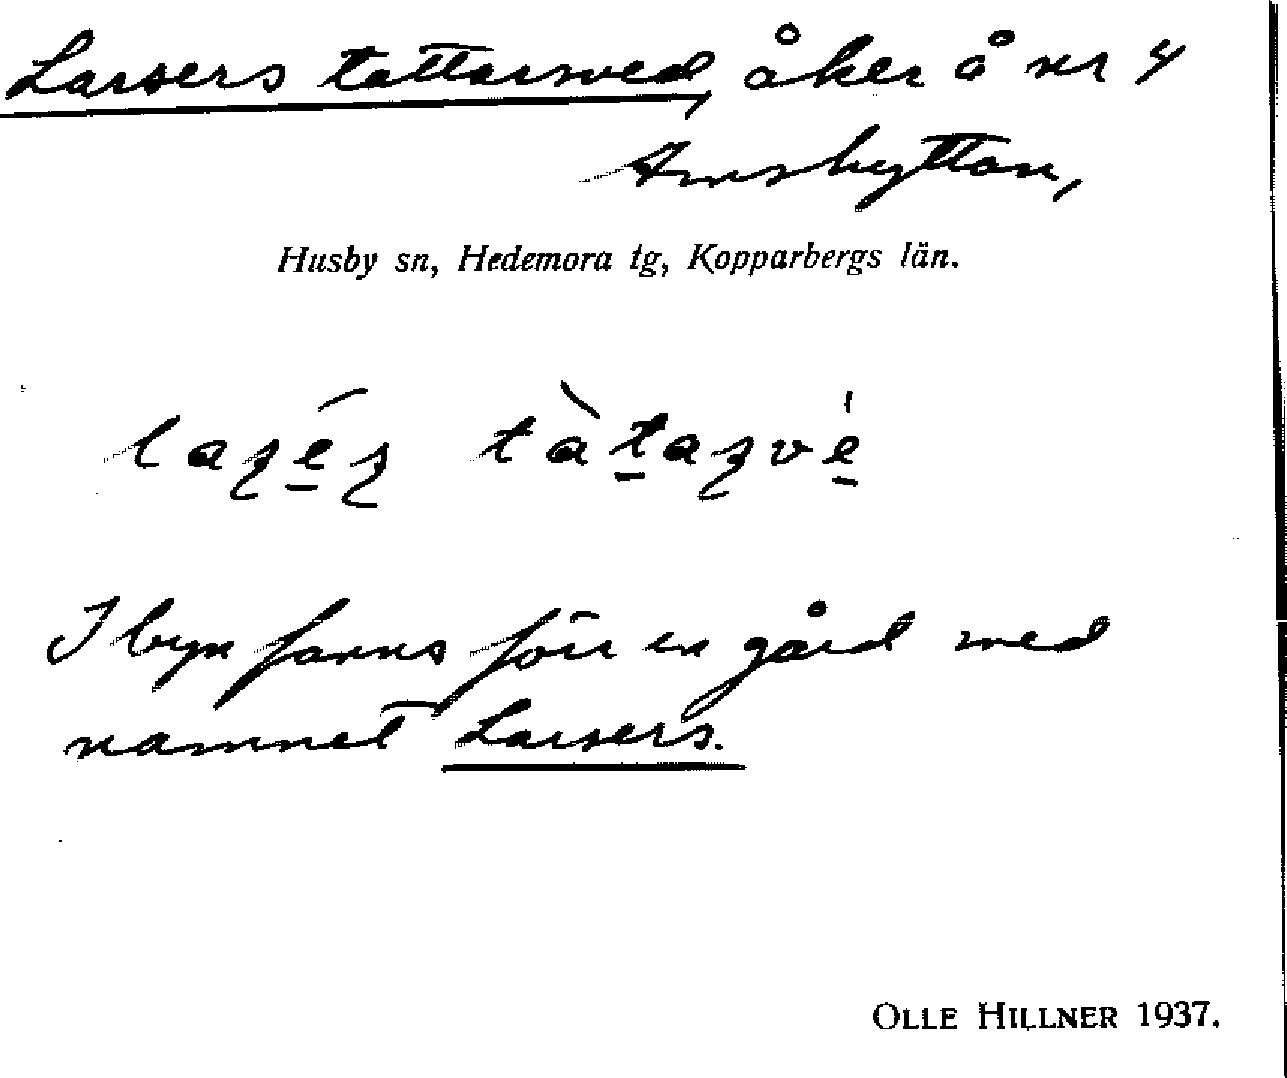 Larsers tattarsved, åker å nr 4
Amshyttan,
Husby sn, Hedemora tg, Kopparbergs län.
I byn fanns förr en gård med
namnet Larsers.
OLLE HILLNER 1937.